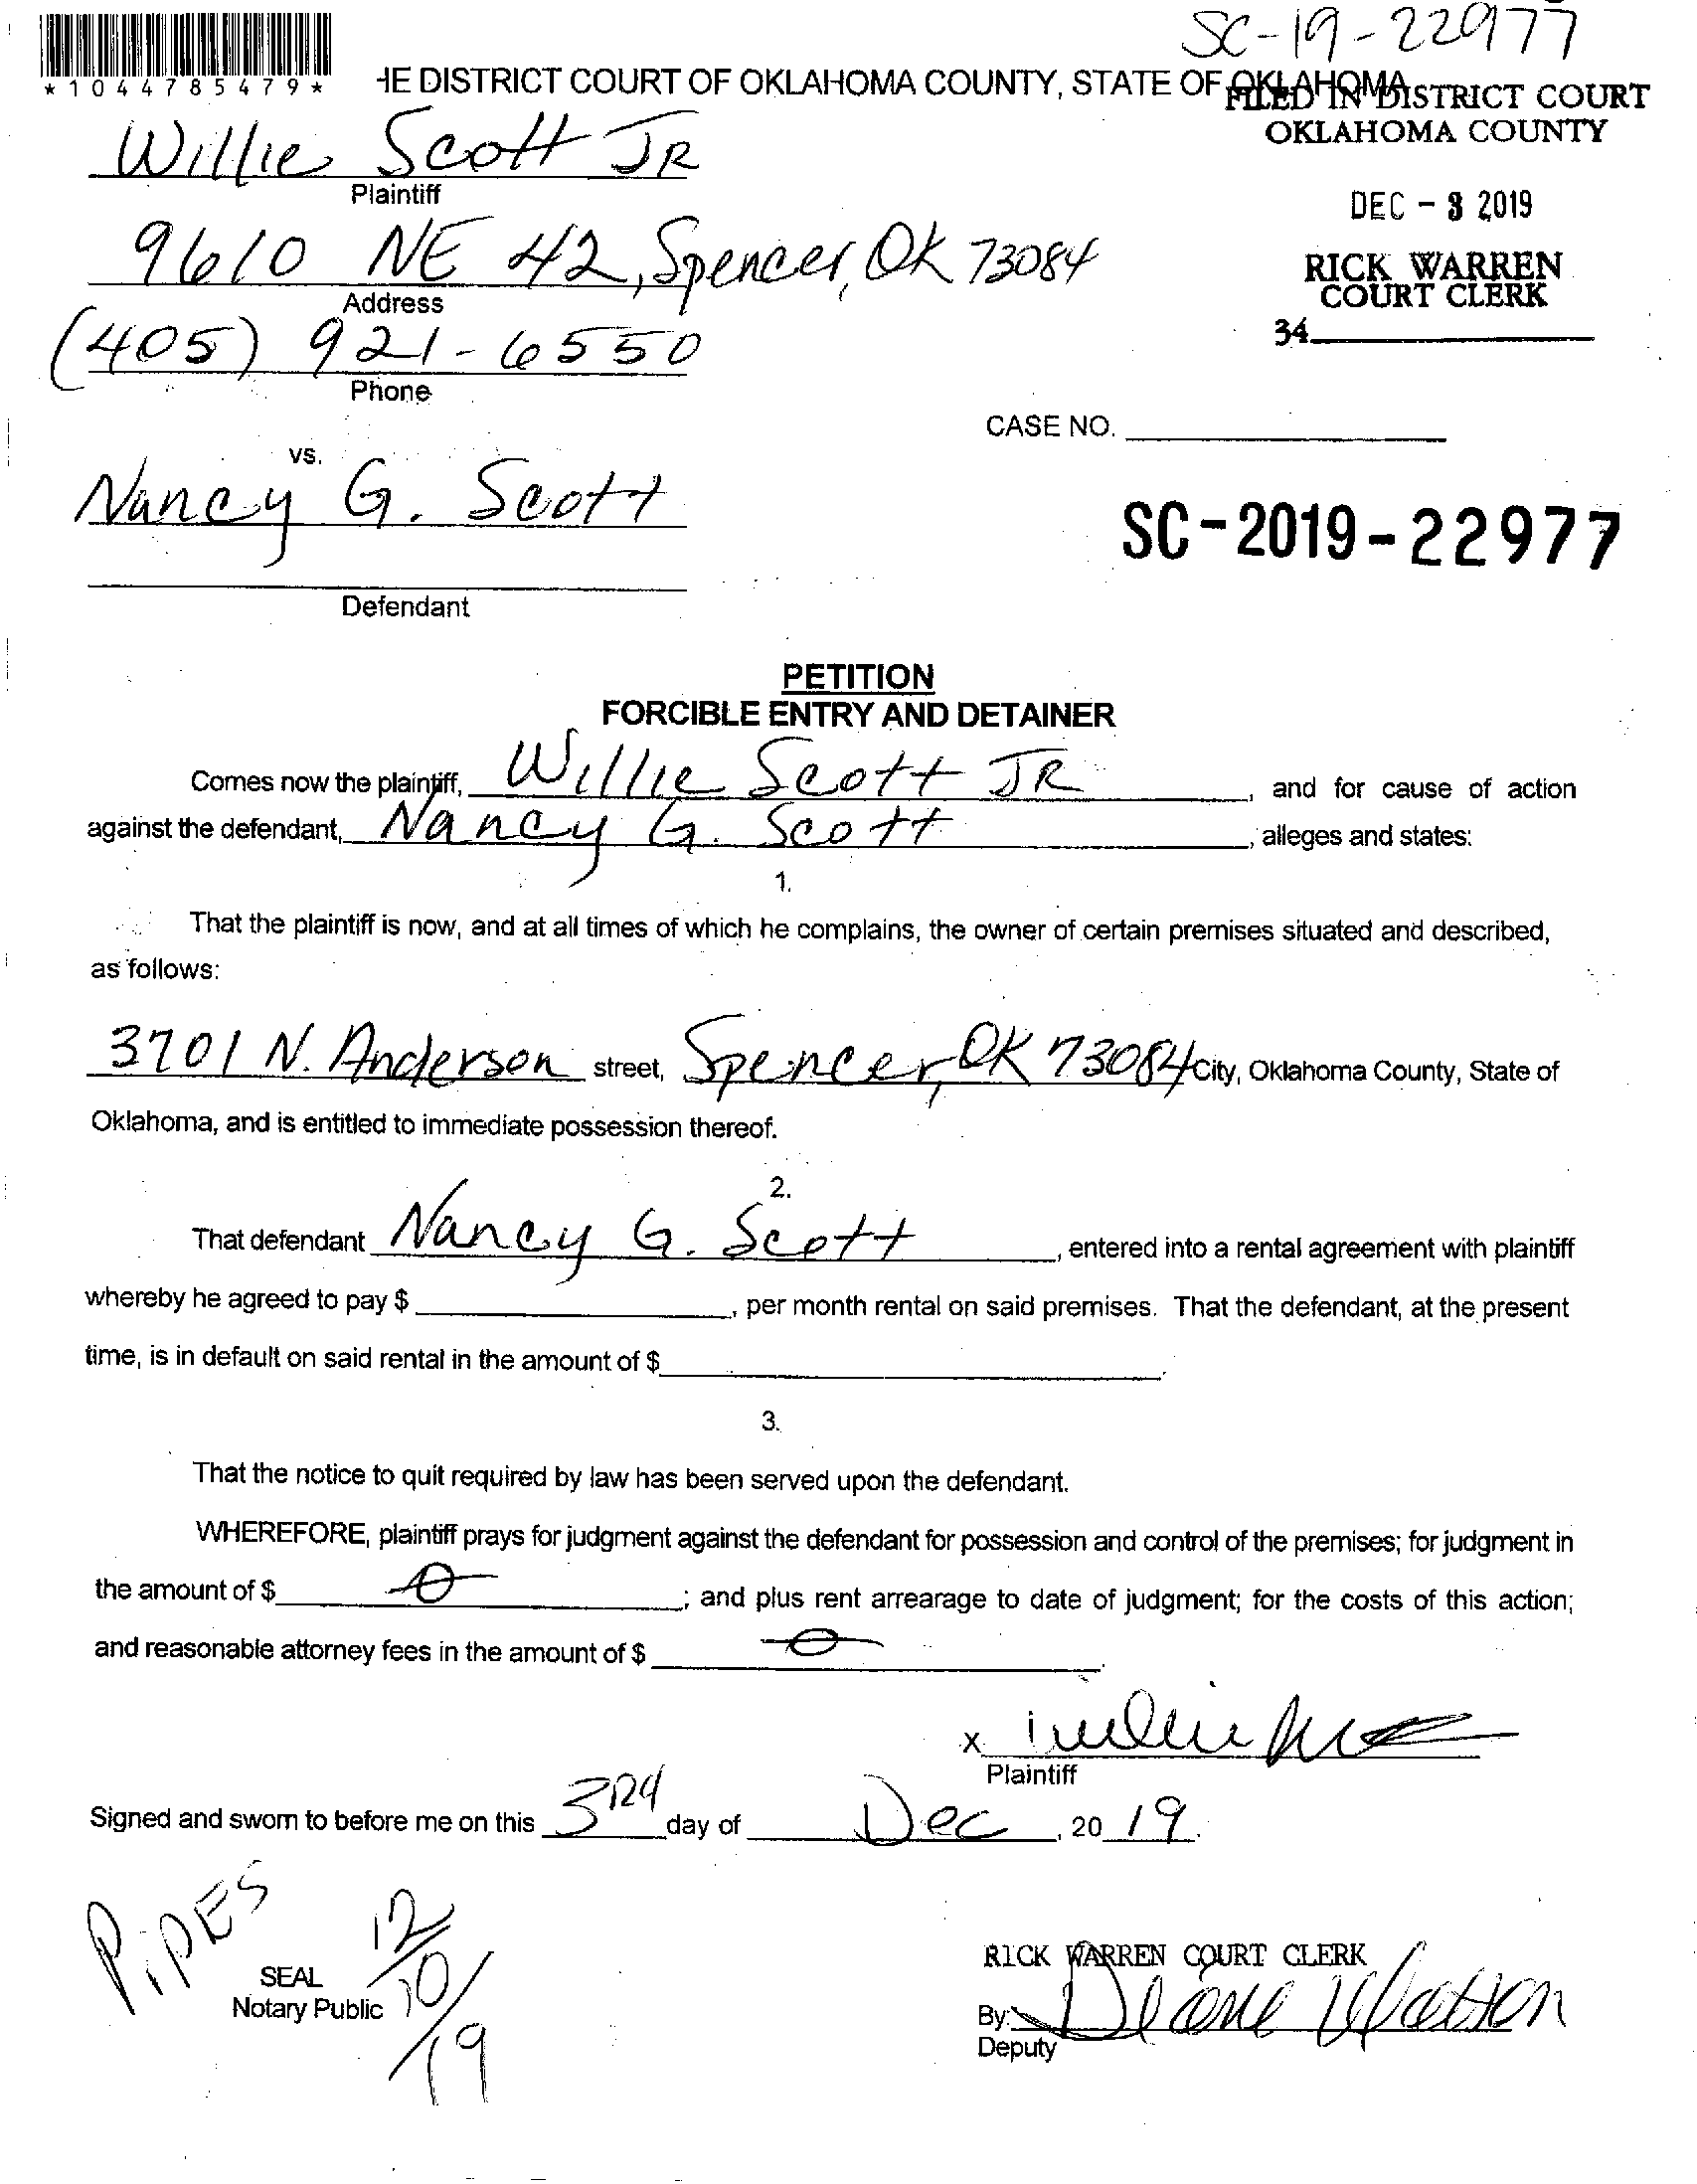 SC-19-22977
*1044785479*
HE DISTRICT COURT OF OKLAHOMA COUNTY, STATE OF OKLAHOMA
FILED IN DISTRICT COURT
OKLAHOMA COUNTY
Willie Scott JR
Plaintiff
DEC - 3 2019
9610 NE 42, Spencer, OK 73084
Address
RICK WARREN
COURT CLERK
34
(405) 921-6550
Phone
CASE NO.
vs.
Nancy G. Scott
SC-2019-22977
Defendant
PETITION
FORCIBLE ENTRY AND DETAINER
Comes now the plaintiff, Willie Scott JR, and for cause of action
against the defendant, Nancy G. Scott, alleges and states:
1.
That the plaintiff is now, and at all times of which he complains, the owner of certain premises situated and described,
as follows:
3701 N. Anderson street, Spencer, OK 73084 City, Oklahoma County, State of
Oklahoma, and is entitled to immediate possession thereof.
2.
That defendant Nancy G. Scott, entered into a rental agreement with plaintiff
whereby he agreed to pay $ , per month rental on said premises. That the defendant, at the present
time, is in default on said rental in the amount of $ .
3.
That the notice to quit required by law has been served upon the defendant.
WHEREFORE, plaintiff prays for judgment against the defendant for possession and control of the premises; for judgment in
the amount of $ 0 ; and plus rent arrearage to date of judgment; for the costs of this action;
and reasonable attorney fees in the amount of $ 0 .
X Willie
Plaintiff
Signed and sworn to before me on this 3rd day of Dec, 2019.
PiPES
12/10/19
SEAL
Notary Public
RICK WARREN COURT CLERK
By: Diane Watson
Deputy